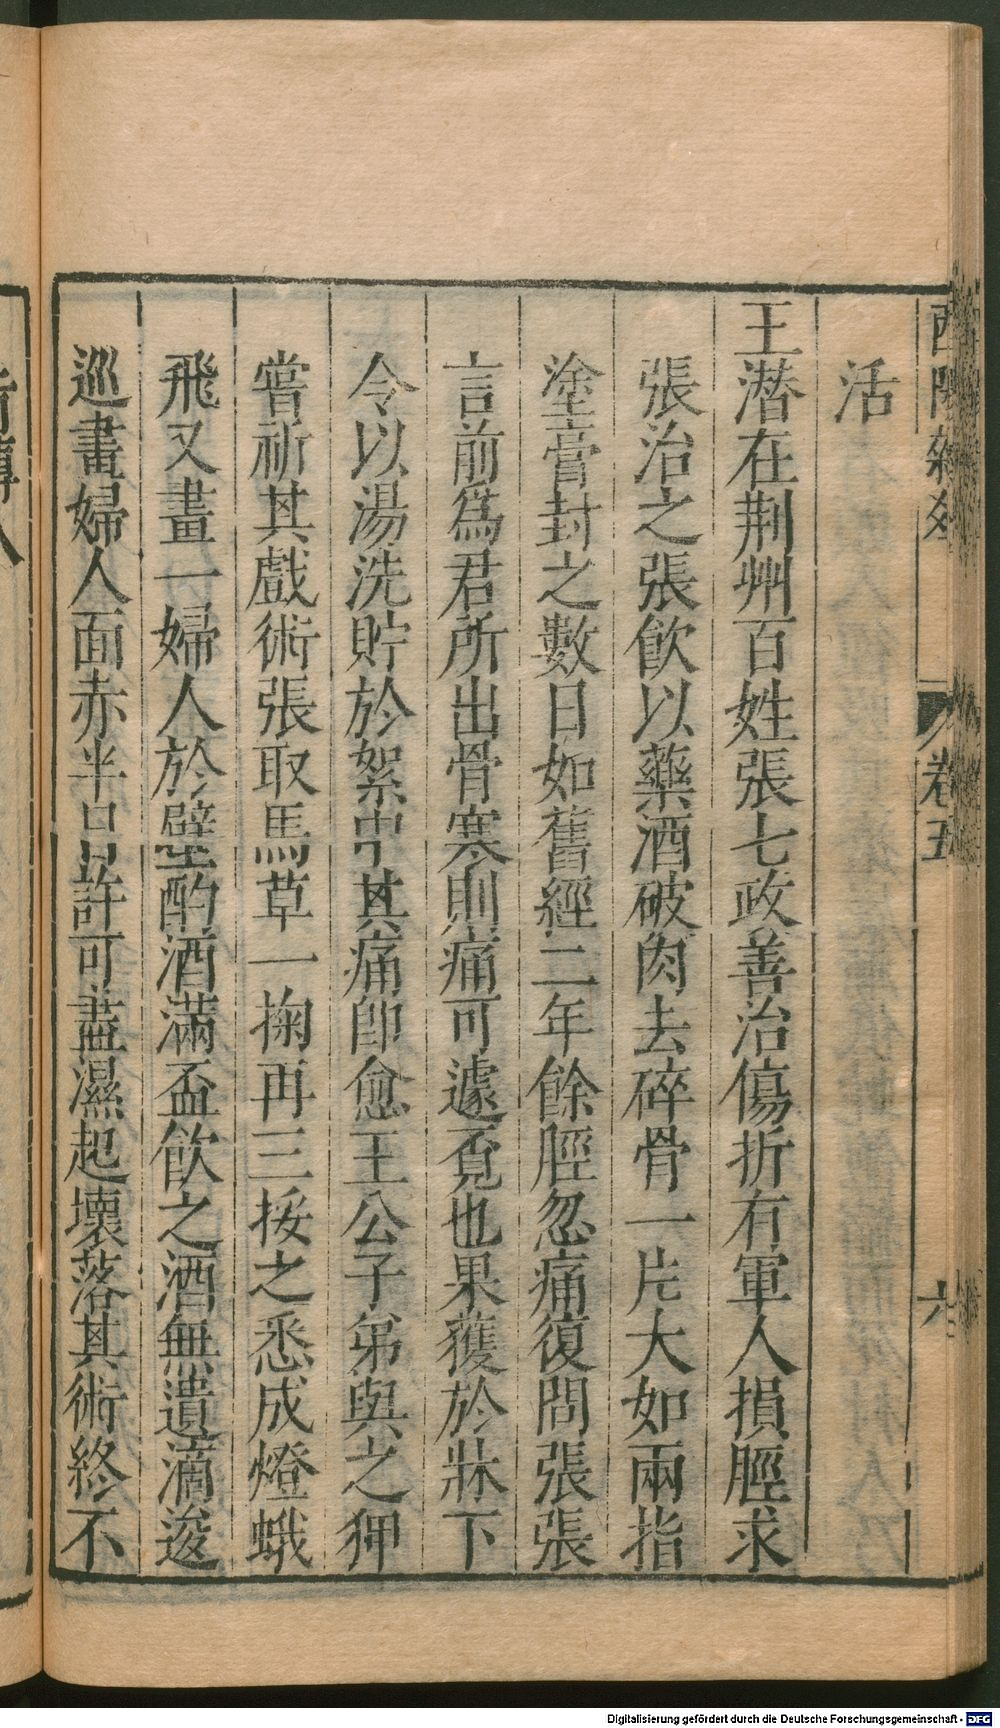 酉陽雜俎
卷五
六
活
王潛在荆州百姓張七政善治傷折有軍人損脛求
張治之張飲以藥酒破肉去碎骨一片大如兩指
塗膏封之數日如舊經二年餘脛忽痛復問張張
言前爲君所出骨寒則痛可遽覔也果獲於牀下
令以湯洗貯於絮中其痛卽愈王公子弟與之狎
嘗祈其戲術張取馬草一掬再三挼之悉成燈蛾
飛又畫一婦人於壁酌酒滿盃飲之酒無遺滴逡
巡畫婦人面赤半日許可盡濕起壞落其術終不
Digitalisierung gefördert durch die Deutsche Forschungsgemeinschaft - DFG